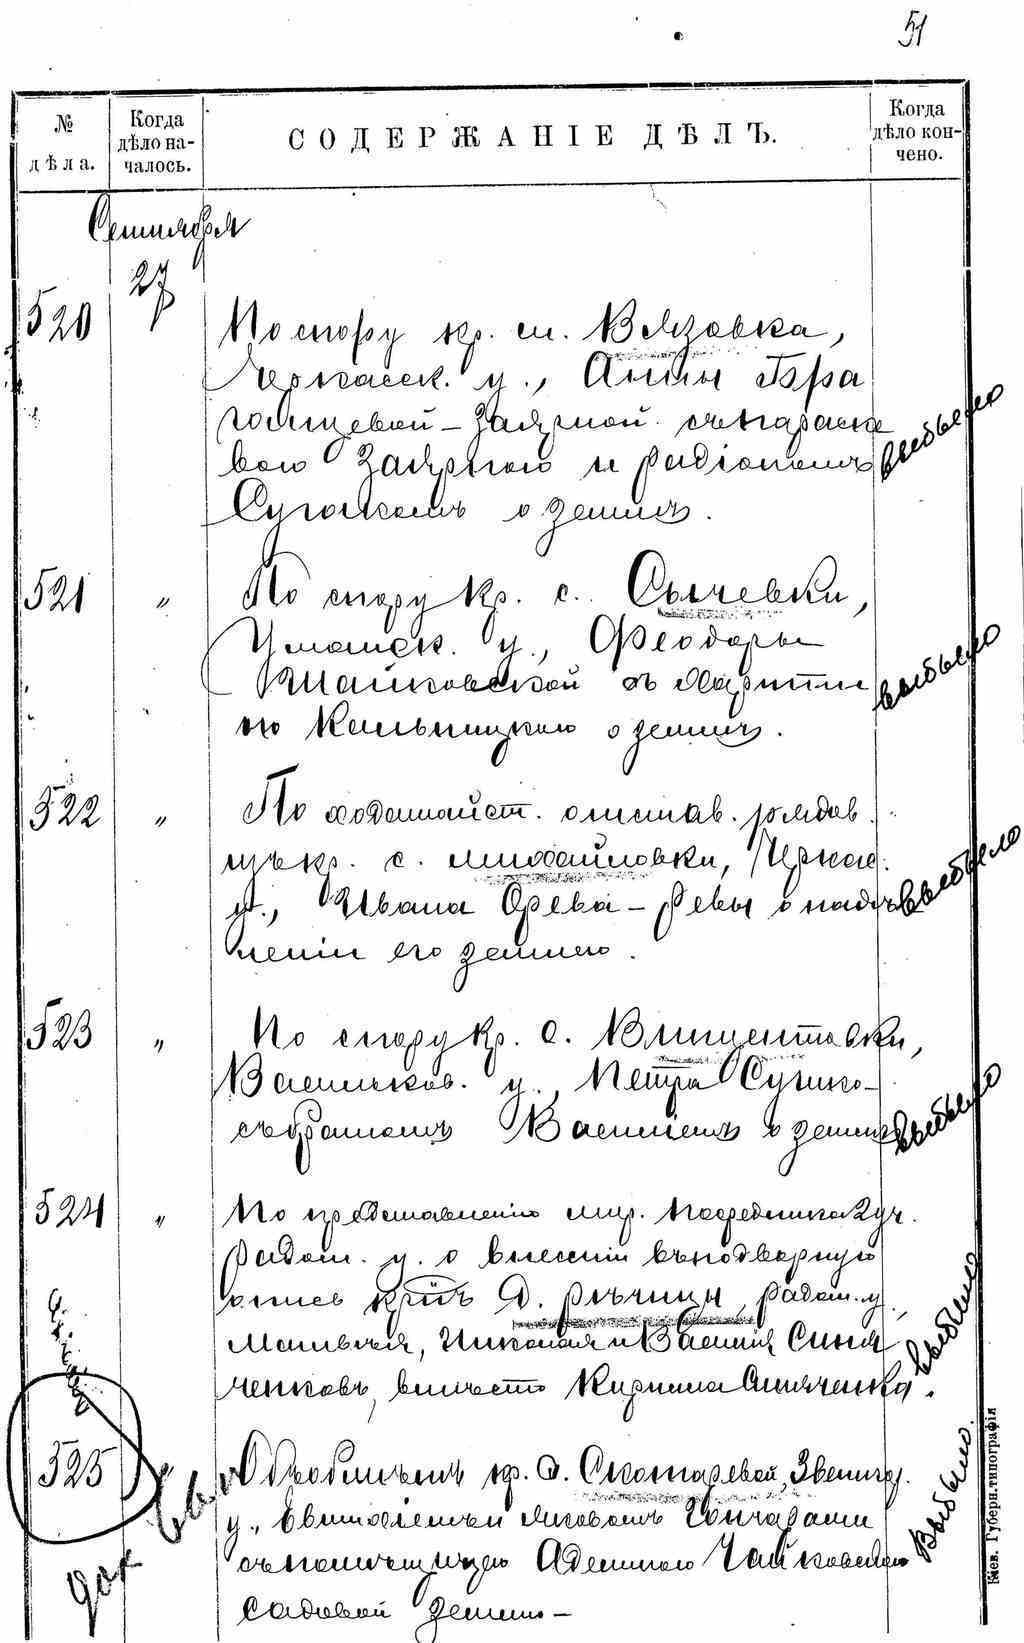 51
№ дѣла.
Когда дѣло началось.
СОДЕРЖАНІЕ ДѢЛЪ.
Когда дѣло кончено.
Сентября
27
520
По спору кр. м. Вязовка,
Черкасск. у., Анны Бра
-Заярной
вою Заярною и Радіономъ
о землѣ.
выбыло
521 "
По спору кр. с. Сычевки,
Уманск. у., Феодоры
Шайковской съ Харити
ною Кальницкою о землѣ.
выбыло
522 "
По ходатайст. отстав. рядов.
изъ кр. с. Михайловки, Черкас.
у., Ивана Орева-Ревы о надѣ
леніи его землею.
выбыло
523 "
По спору кр. с. Винцентовки,
Васильков. у., Петра
съ братомъ Василіемъ о землѣ
выбыло
524 "
По представленію мир. посредника 2 уч.
Радом. у. о внесеніи въ подворную
опись кр. д. Рѣчицы, Радом. у.
Матвѣя, Николая и Василія Синя
ченковъ, вмѣсто Кирилла Синяченка.
выбыло
525 "
кр. с. Скотаревой, Звениг.
у., Гончарами
съ помѣщицею Чайковскою
садовой земли-
Выбыло.
Кіев. Губерн. типографія